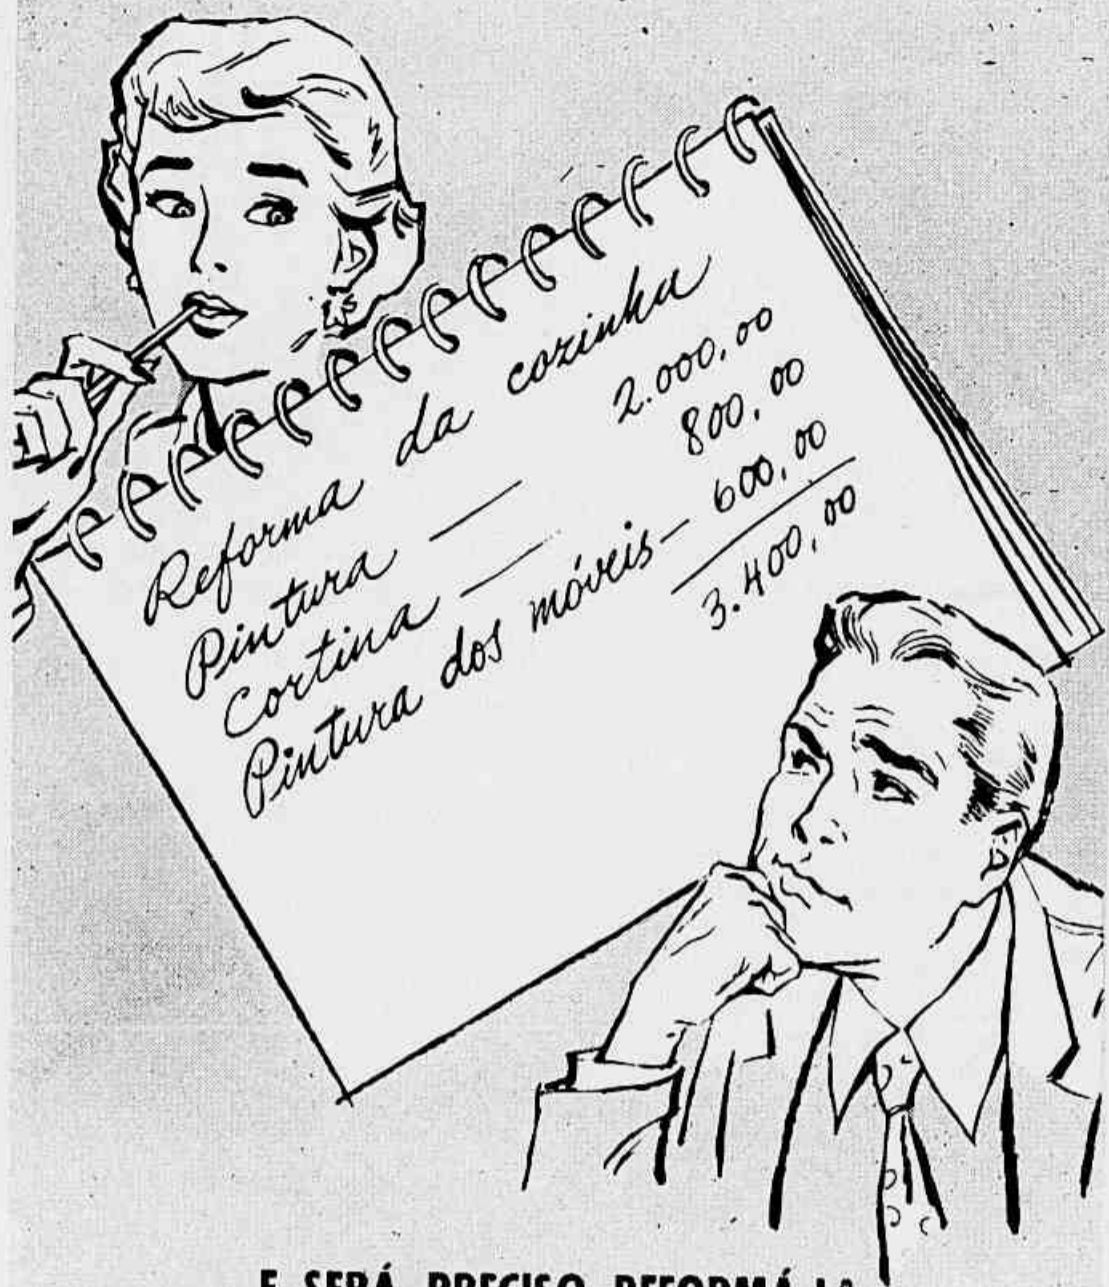 Reforma da cozinha
Pintura — 2.000,00
Cortina — 800,00
Pintura dos móveis — 600,00
3.400,00
E SERÁ PRECISO REFORMÁ-LA